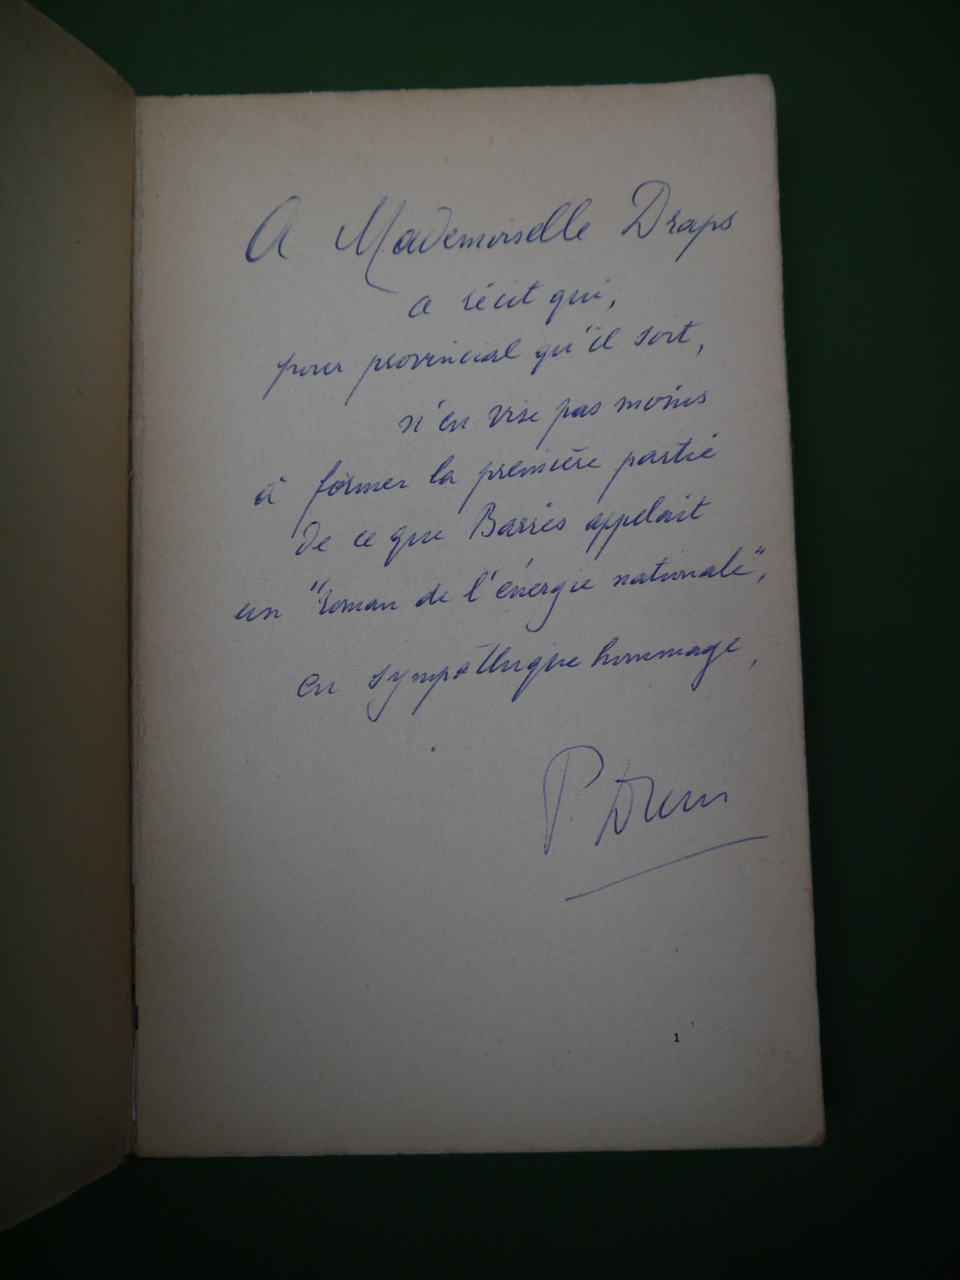 A Mademoiselle Draps
ce récit qui,
pour provincial qu'il soit,
n'en vise pas moins
à former la première partie
de ce que Barrès appelait
un "roman de l'énergie nationale",
en sympathique hommage,
P.
1